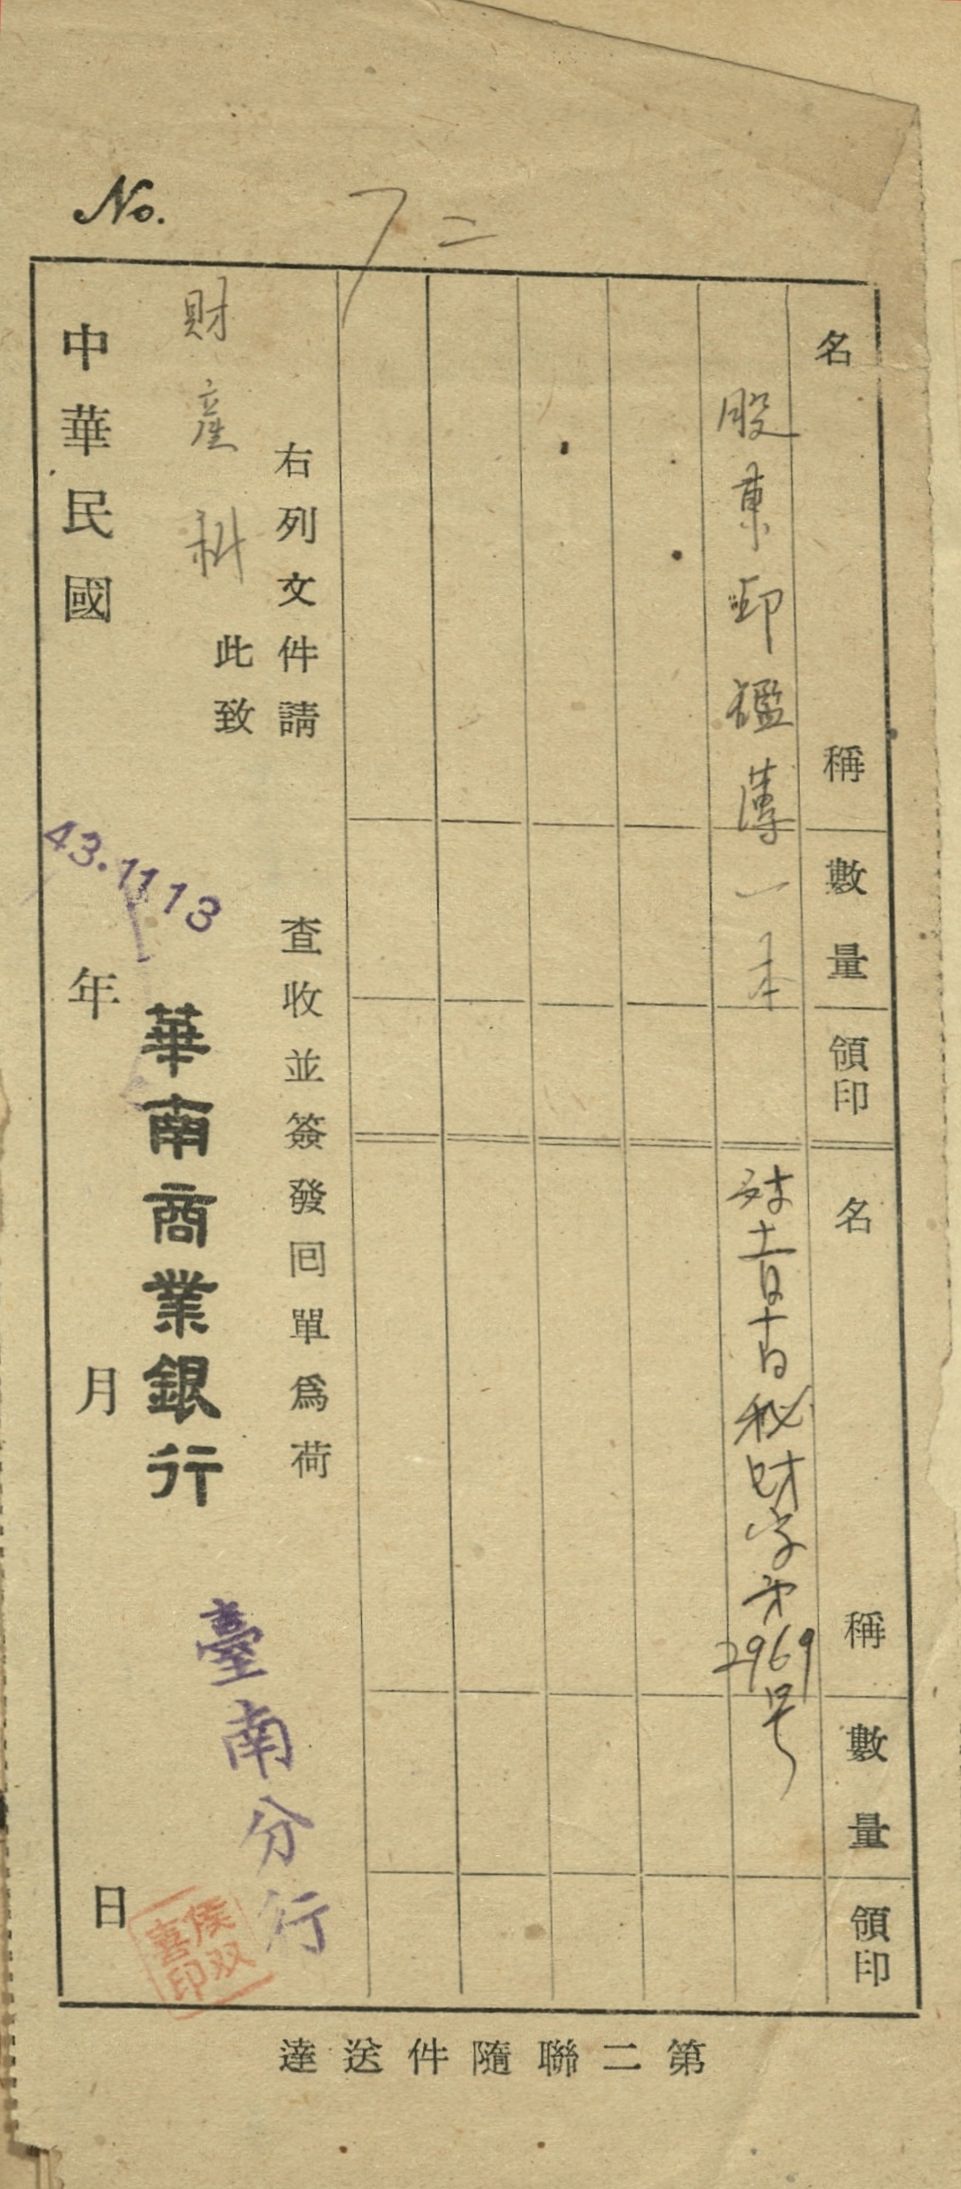 No.
名 稱 數量 領印 名 稱 數量 領印
股東印鑑薄一本
十一月十日秘財字第2969号
右列文件請 查收並簽發回單爲荷
此致
財產科
華南商業銀行 臺南分行
43.11.13
中華民國 年 月 日
侯双喜印
第二聯隨件送達